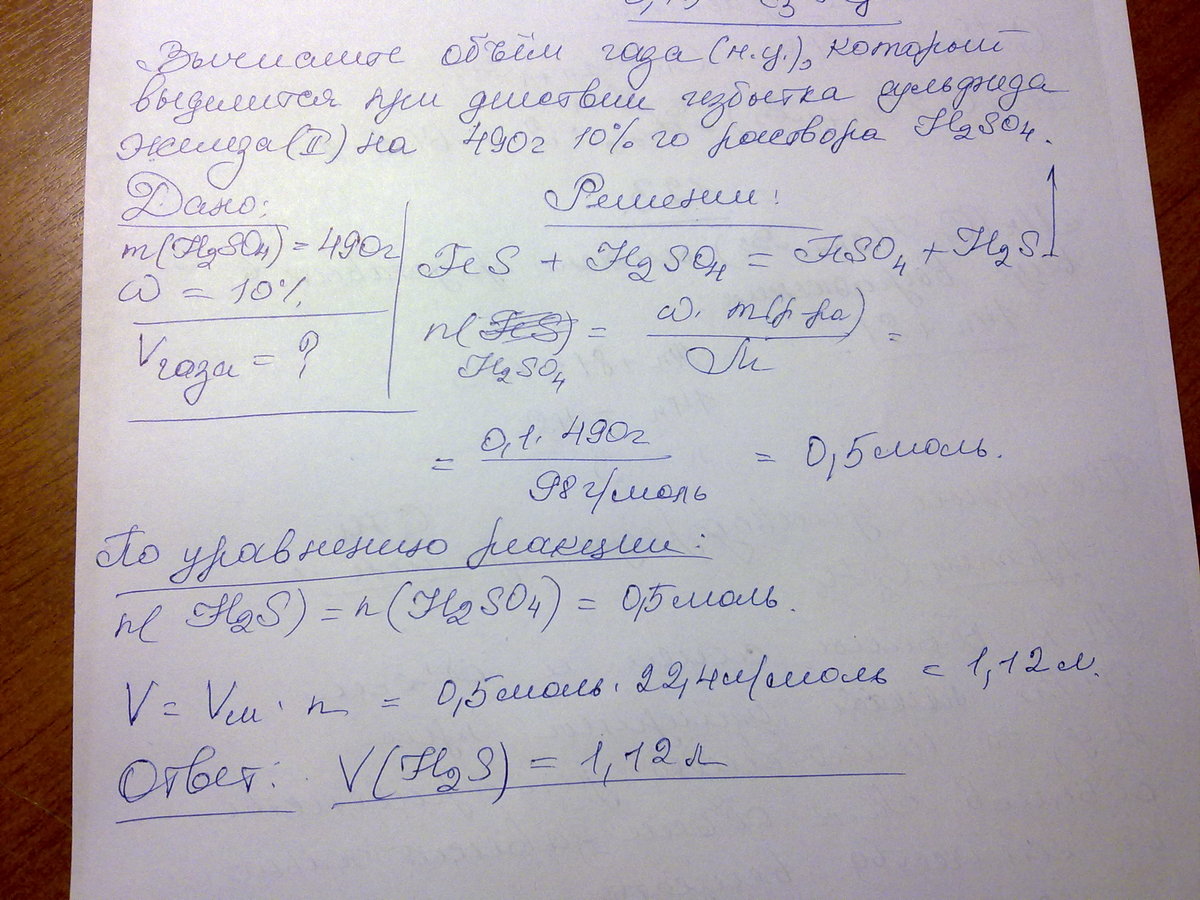 Вычислите объём газа (н.у.), который
выделится при действии избытка сульфида
железа (II) на 490г 10% го раствора H₂SO₄.
Дано:
m(H₂SO₄) = 490г
ω = 10%
Vгаза = ?
Решение:
FeS + H₂SO₄ = FeSO₄ + H₂S↑
n(H₂SO₄) = ω · m(р-ра) / M =
= 0,1 · 490г / 98 г/моль = 0,5 моль.
По уравнению реакции:
n(H₂S) = n(H₂SO₄) = 0,5 моль.
V = Vм · n = 0,5 моль · 22,4 л/моль = 1,12 л.
Ответ: V(H₂S) = 1,12 л